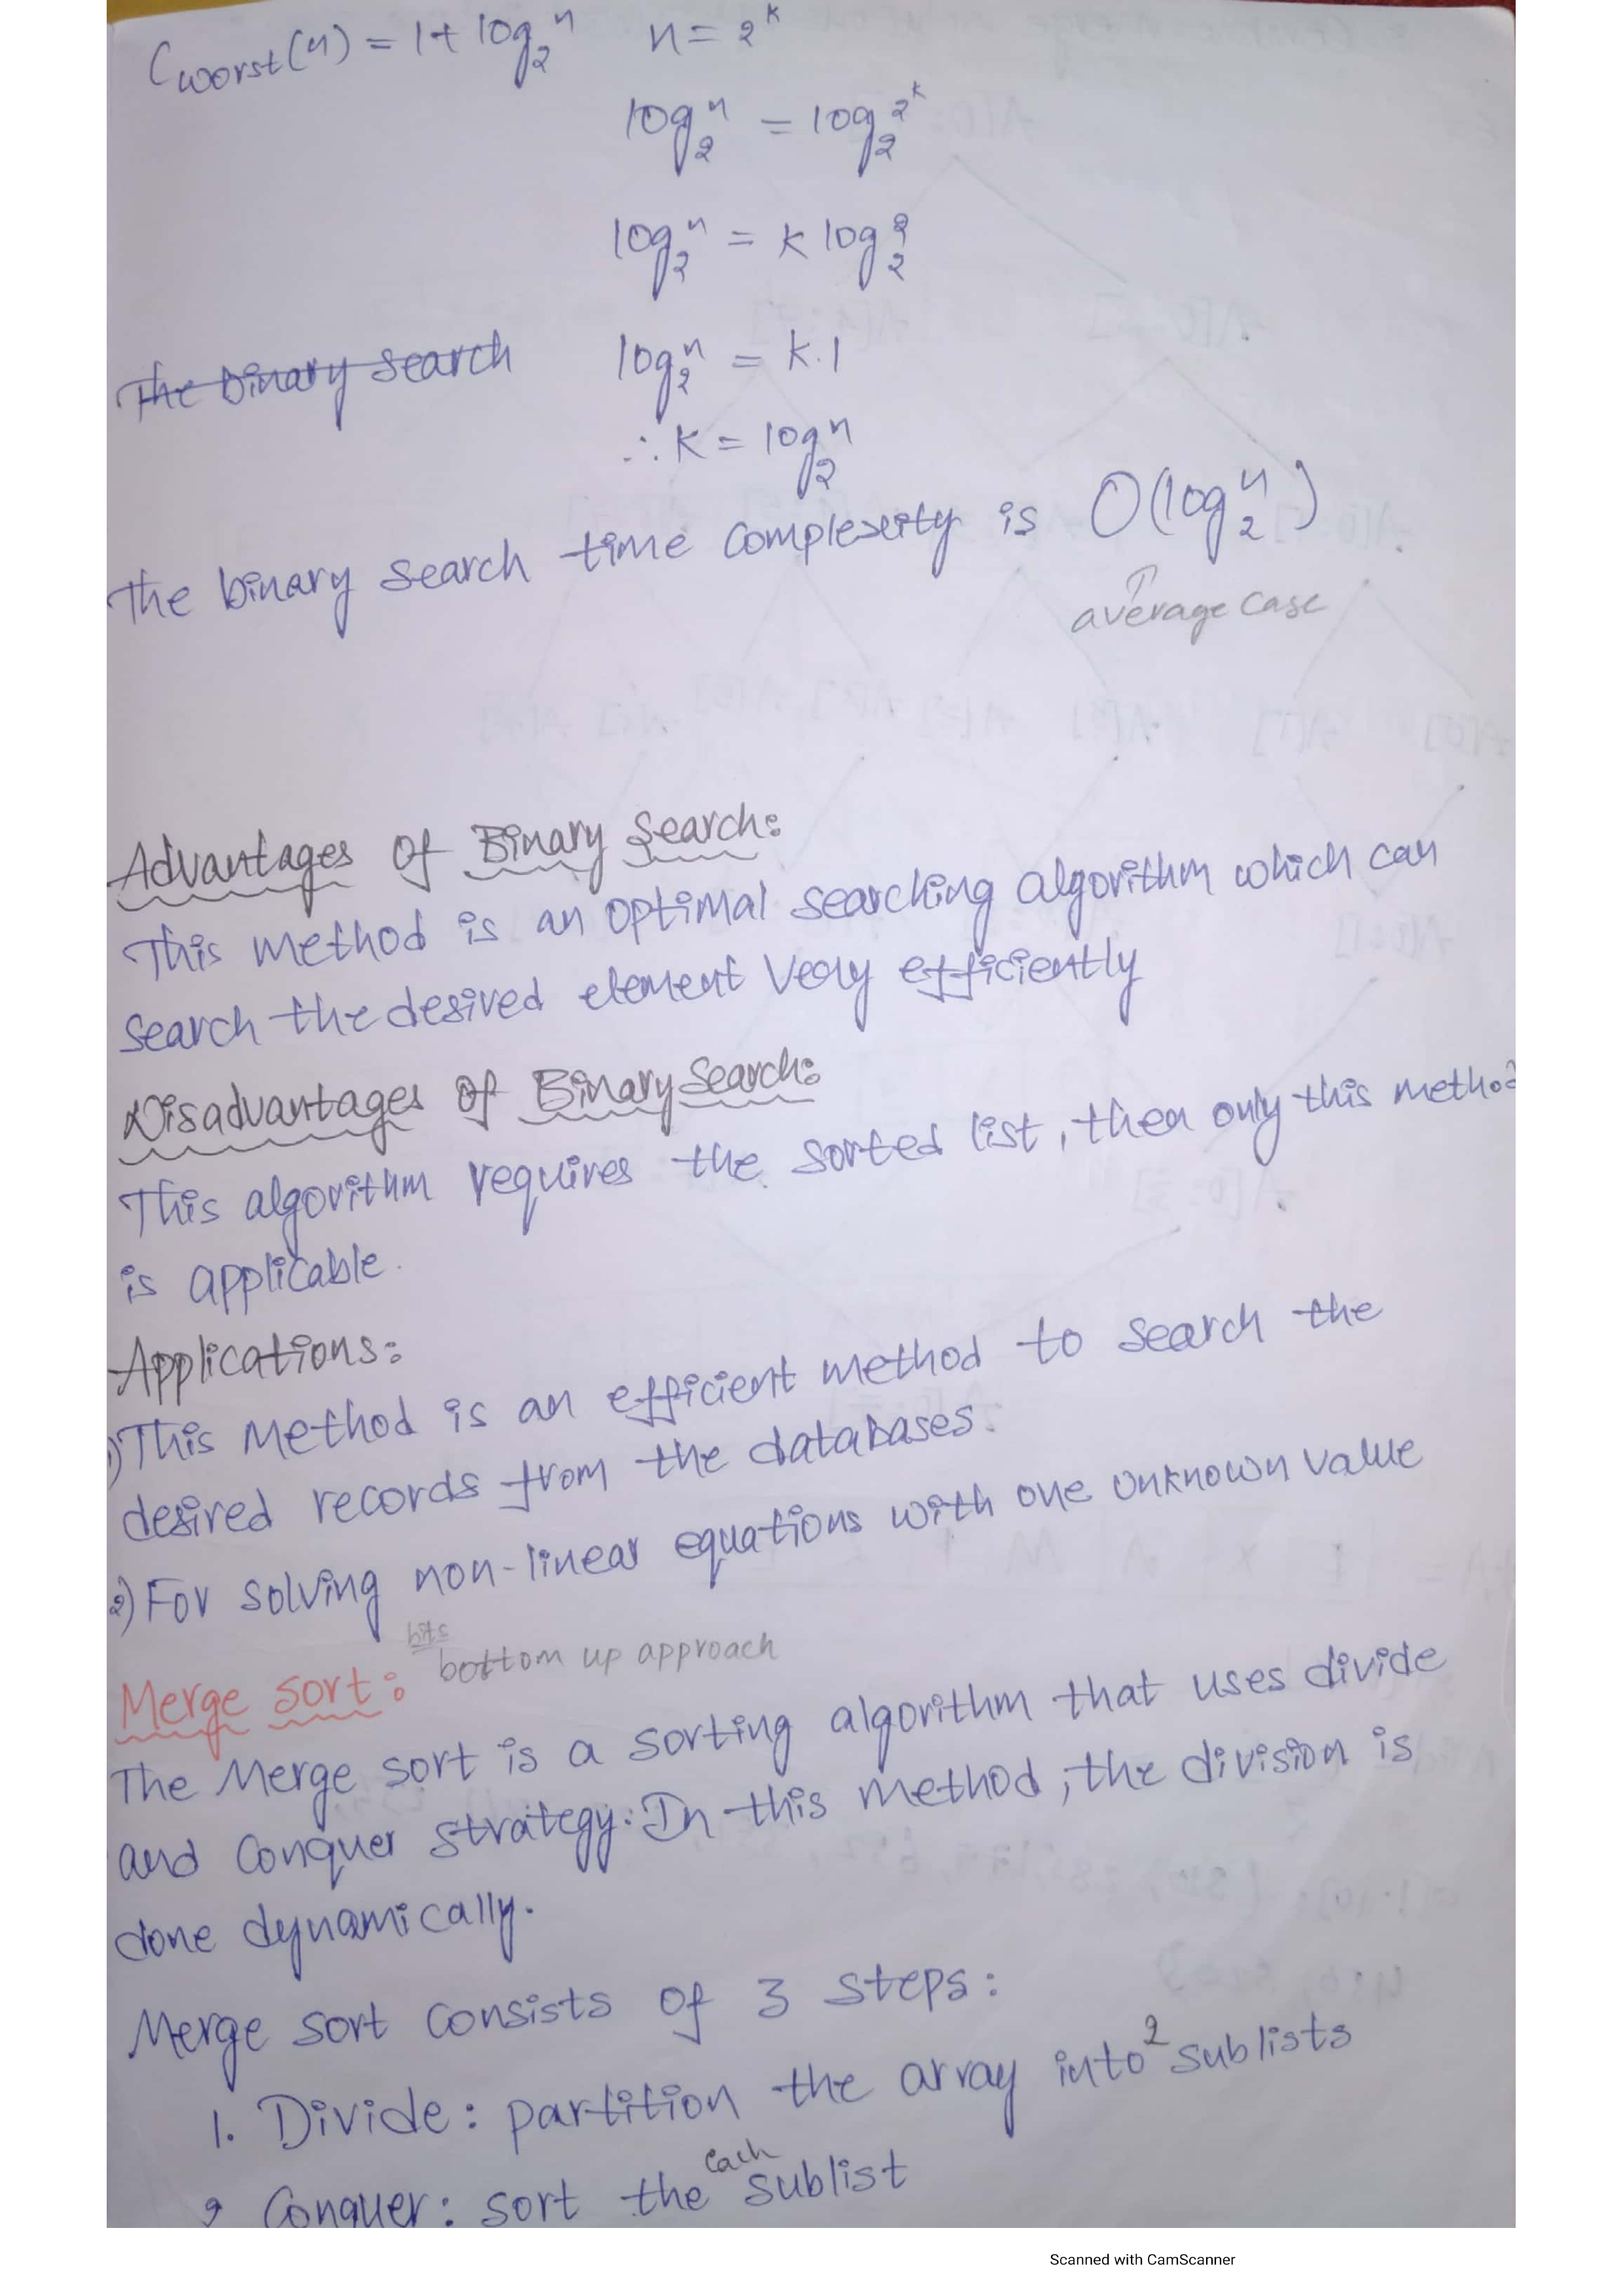 Cworst(n) = 1+ log₂ⁿ    n = 2ᵏ
log₂ⁿ = log₂2ᵏ
log₂ⁿ = k log₂²
The binary search    log₂ⁿ = k.1
∴ k = log₂ⁿ
The binary search time complexity is O(log₂ⁿ)
↑
average case
Advantages of Binary Search:
This method is an optimal searching algorithm which can
search the desired element Very efficiently
Disadvantages of Binary Search:
This algorithm requires the sorted list, then only this method
is applicable.
Applications:
1) This Method is an efficient method to search the
desired records from the databases.
2) For solving non-linear equations with one unknown value
bits
Merge sort: bottom up approach
The Merge sort is a sorting algorithm that uses divide
and Conquer strategy. In this method, the division is
done dynamically.
Merge sort consists of 3 steps:
1. Divide: partition the array into 2 sublists
2 Conquer: sort the each sublist
Scanned with CamScanner